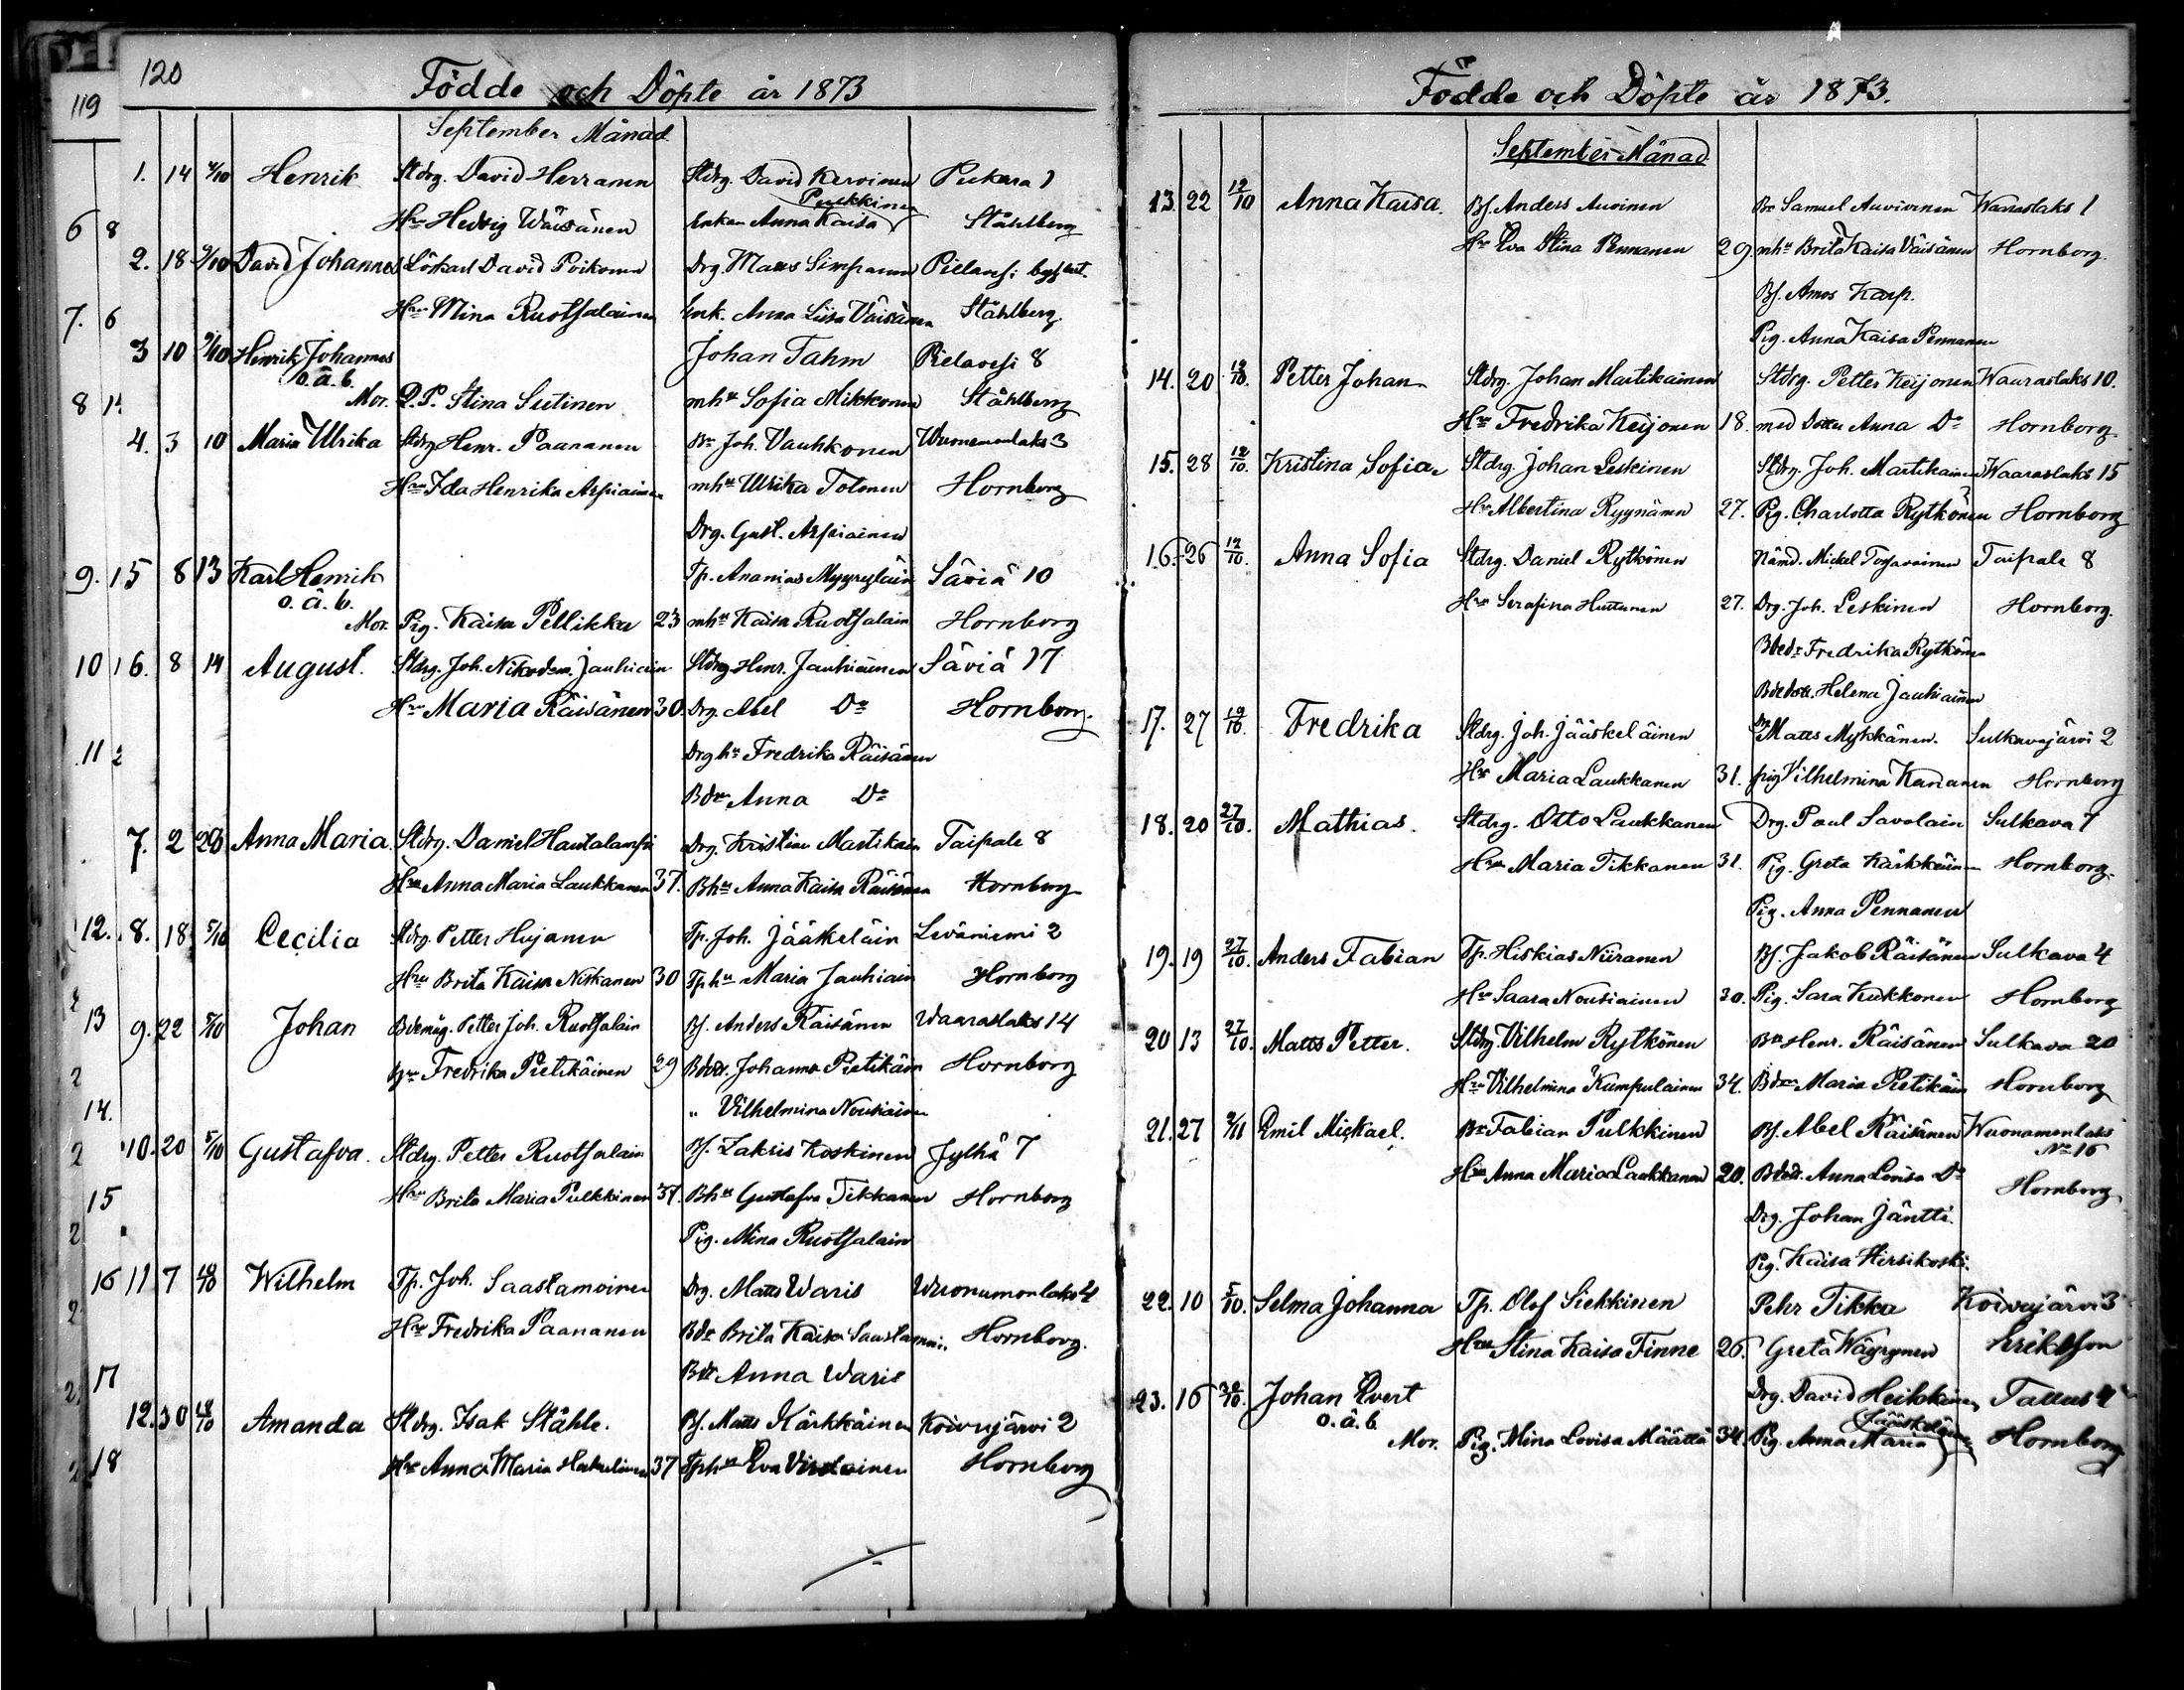 120
119
Födde och Döpte år 1873
September Månad
1. 14 4/10 Henrik Stdrg. David Herranen Stdrg. David Kervinen Pukara 1
Pulkkinen
6 8 Hru Hedvig Wäisänen Enkan Anna Kaisa Ståhlberg
2. 18 David Johannes Lökarl David Poikonen Drg. Matts Simpanen Pielavesi
7. 6 Hru Mina Ruotsalainen Enk. Anna Liisa Väisänen Ståhlberg.
3 10 Henrik Johannes Johan Tahm Pielavesi 8
o.ä.b.
8 Mor. Q.P. Stina Sutinen mhu Sofia Mikkonen Ståhlberg
4. 3 10 Maria Ulrika Stdrg Henr. Paananen Br. Joh. Vauhkonen Wuonamonlaks 3
Hru Ida Henrika Arpiainen mhu Ulrika Tolonen Hornborg
Drg. Gust. Arpiainen
9. 15 8 13 Karl Henrik Tp. Ananias Myyryläin Säviä 10
o.ä.b.
Mor. Pig. Kaisa Pellikka 23 mhu Kaisa Ruotsalain Hornborg
10 16. 8 14 August. Stdrg. Joh. Nikodem. Jauhiain Stdrg Henr. Jauhiainen Säviä 17
Hru Maria Räisänen 30. Drg. Abel Do Hornborg.
11 2 Drg hu Fredrika Räisänen
Bdr Anna Do
7. 2 20 Anna Maria. Stdrg. Daniel Hautalampi Drg. Kristian Martikain Taipale 8
Hru Anna Maria Laukkanen 37. Bhu Anna Kaisa Räisänen Hornborg
12. 8. 18 5/10 Cecilia Stdrg. Petter Hujanen Tp. Joh. Jääskeläin Leväniemi 2
Hru Brita Kaisa Niskanen 30 Tphu Maria Jauhiain Hornborg
13 9. 22 5/10 Johan Bdemåg. Petter Joh. Ruotsalain Bf. Anders Räisänen Waaraslaks 14
Hru Fredrika Pietikäinen 29 Bdott. Johanna Pietikäin Hornborg
2
14. " Vilhelmina Nousiainen
2 10. 20 5/10 Gustafva. Stdrg. Petter Ruotsalain Bf. Zakris Koskinen Jylhä 7
15 Hru Brita Maria Pulkkinen 37. Bhu Gustafva Tikkanen Hornborg
2 Pig. Mina Ruotsalain
16 11 7 Wilhelm Tp. Joh. Saastamoinen Drg. Matts Waris Wuonamonlaks 4
2 Hru Fredrika Paananen Bdr Brita Kaisa Saastamoi. Hornborg.
17 Bdr Anna Waris
2. 12. 30 12/10 Amanda Stdrg. Isak Ståhle. Bf. Matts Kärkkäinen Koivujärvi 2
2 18 Hru Anna Maria Hakulinen 37 Tphu Eva Virolainen Hornborg
Födde och Döpte år 1873.
September Månad
13. 22 12/10 Anna Kaisa. Bf. Anders Auvinen Br Samuel Auvivinen Waaraslaks 1
Hru Eva Stina Pennanen 29. mhu Brita Kaisa Väisänen Hornborg.
Bf. Amos Karp.
Pig. Anna Kaisa Pennanen
14. 20 12/10. Petter Johan Stdrg. Johan Martikainen Stdrg. Petter Keijonen Waaraslaks 10.
Hru Fredrika Keijonen 18. med Dotter Anna Do Hornborg.
15. 28 12/10. Kristina Sofia. Stdrg. Johan Leskinen Stdrg. Joh. Martikainen Waaraslaks 15
Hru Albertina Ryynänen 27. Pig. Charlotta Rytkönen Hornborg
16. 26 12/10. Anna Sofia Stdrg. Daniel Rytkönen Nämd. Mickel Toivarainen Taipale 8
Hru Serafina Huttunen 27. Drg. Joh. Leskinen Hornborg.
Fredrika Rytkönen
Bdedott. Helena Jauhiainen
17. 27 12/10. Fredrika Stdrg. Joh. Jääskeläinen Drg Matts Mykkänen. Sulkavajärvi 2
Hru Maria Laukkanen 31. pig Vilhelmina Kananen Hornborg
18. 20 27/10. Mathias. Stdrg. Otto Laukkanen Drg. Paul Savolain Sulkava 7
Hru Maria Tikkanen 31. Pig. Greta Kärkkäinen Hornborg.
Pig. Anna Pennanen
19. 19 27/10. Anders Fabian Tp. Hiskias Niiranen Bf. Jakob Räisänen Sulkava 4
Hru Saara Nousiainen 30. Pig. Sara Kukkonen Hornborg
20 13 27/10. Matts Petter. Stdrg. Vilhelm Rytkönen Br Henr. Räisänen Sulkava 20
Hru Vilhelmina Kumpulainen 34. Bdr Maria Pietikäin Hornborg
21. 27 2/11 Emil Mickael. Br Fabian Pulkkinen Bf. Abel Räisänen Wuonamonlaks
No 16
Hru Anna Maria Laukkanen 20. Bdott. Anna Lovisa Do Hornborg
Drg. Johan Jäntti.
Pig. Kaisa Hirsikoski.
22. 10 5/10. Selma Johanna Tp. Olof Siekkinen Pehr Tikka Koivujärvi 3
Hru Stina Kaisa Finne 26. Greta Wäyrynen Eriksson
23. 16 Johan Evert Drg. David Heikkinen Tallus 4
o.ä.b. Jääskeläinen
Mor. Pig. Mina Lovisa Määttä 34. Pig. Anna Maria Hornborg